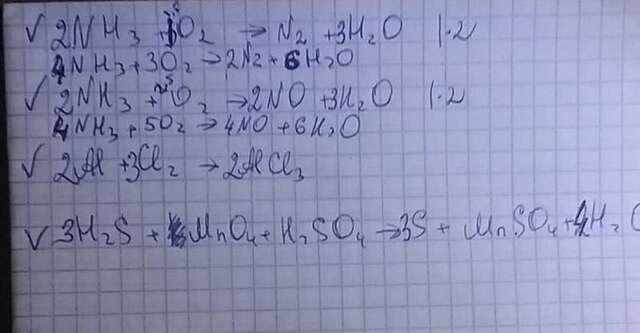 ✓ 2NH₃ + 1,5O₂ → N₂ + 3H₂O |·2
4NH₃ + 3O₂ → 2N₂ + 6H₂O
✓ 2NH₃ + 2,5O₂ → 2NO + 3H₂O |·2
4NH₃ + 5O₂ → 4NO + 6H₂O
✓ 2Al + 3Cl₂ → 2AlCl₃
✓ 3H₂S + MnO₄ + H₂SO₄ → 3S + MnSO₄ + 4H₂O